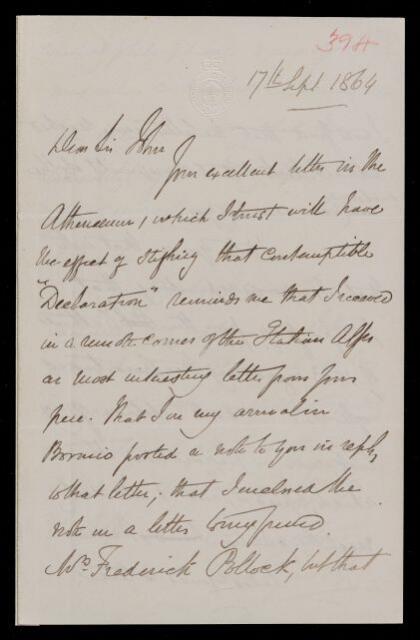 394
17th Sept 1864
Dear Sir John
Your excellent letter in the
Athenaeum, which I trust will have
the effect of stifling that contemptible
"Declaration" reminds me that I received
in a remote corner of the Italian Alps
a most interesting letter from your
pen. That I on my arrival in
Bormio posted a note to you in reply,
to that letter; that I enclosed the
note in a letter to my friend
Mrs Frederick Pollock, but that